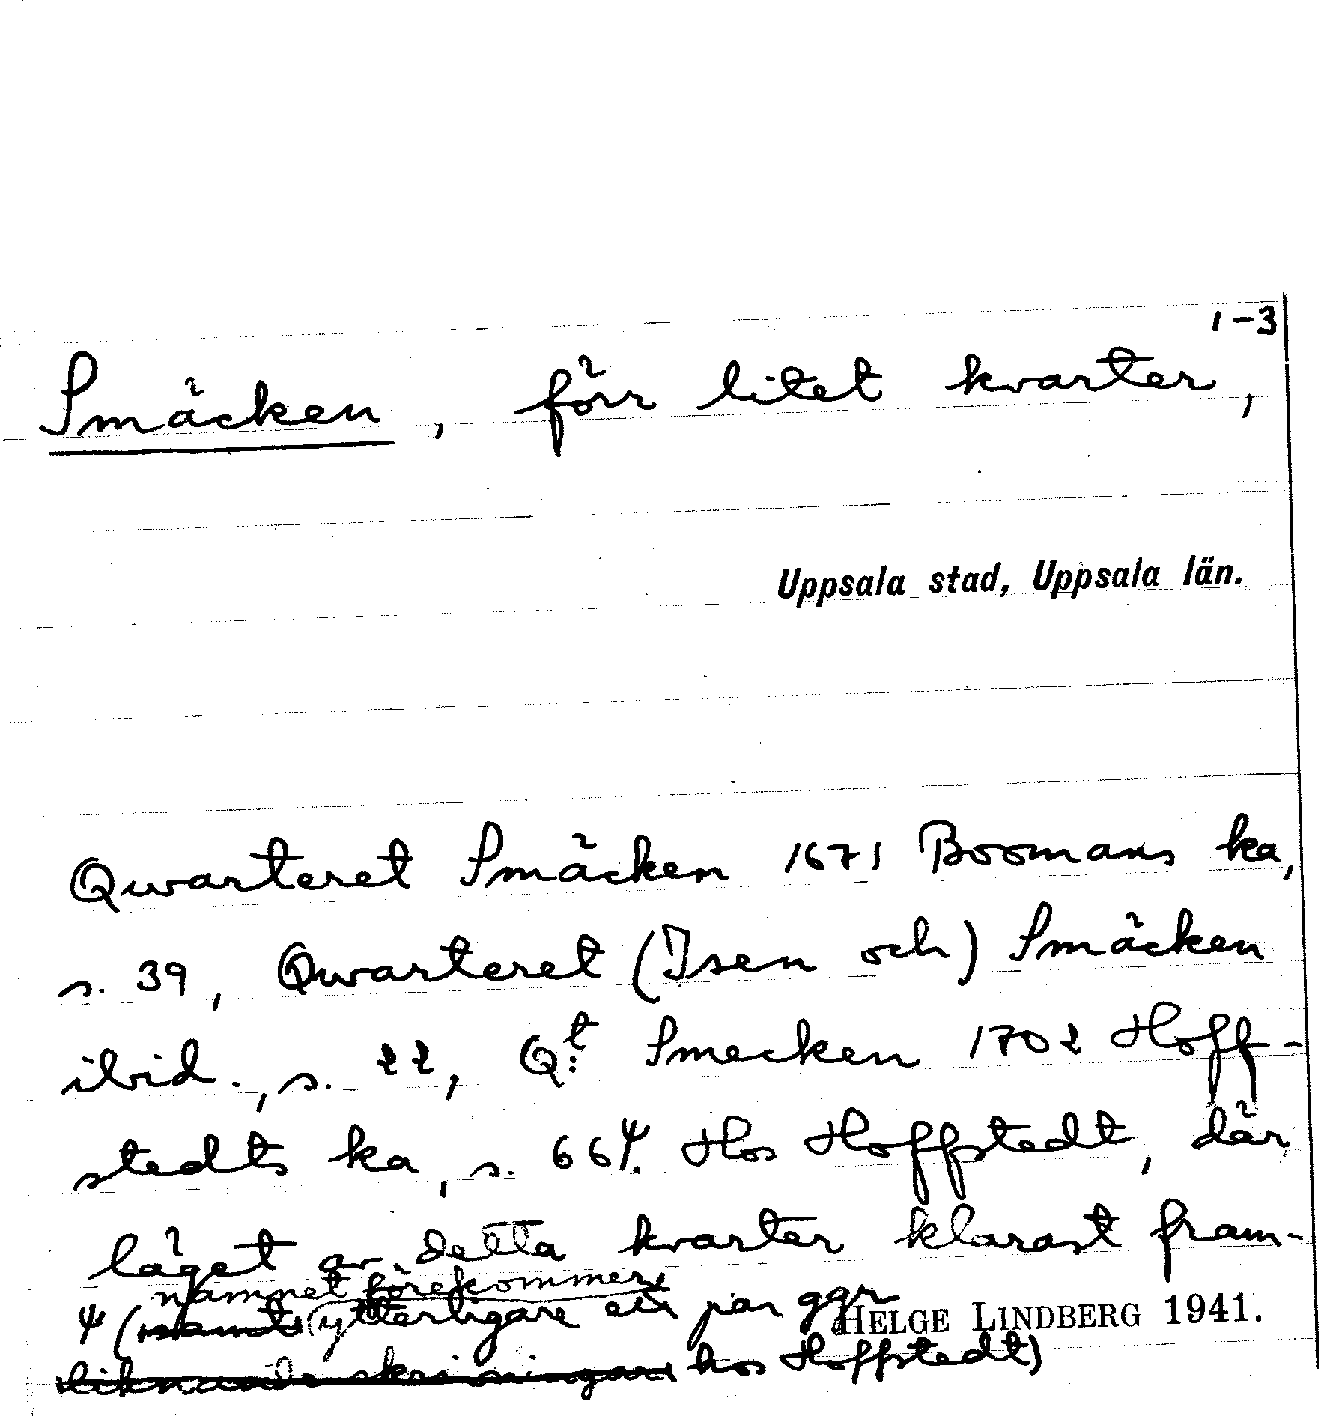 1-3
Smäcken, förr litet kvarter,
Uppsala stad, Uppsala län.
Qwarteret Smäcken 1671 Boomans ka,
s. 39, Qwarteret (Isen och) Smäcken
ibid., s. 22, Q:t Smecken 1702 Hoff-
stedts ka, s. 66ψ. Hos Hoffstedt, där
läget av detta kvarter klarast fram-
namnet förekommer
ψ (samt ytterligare ett par ggr
HELGE LINDBERG 1941.
liknande skrivningar hos Hoffstedt)